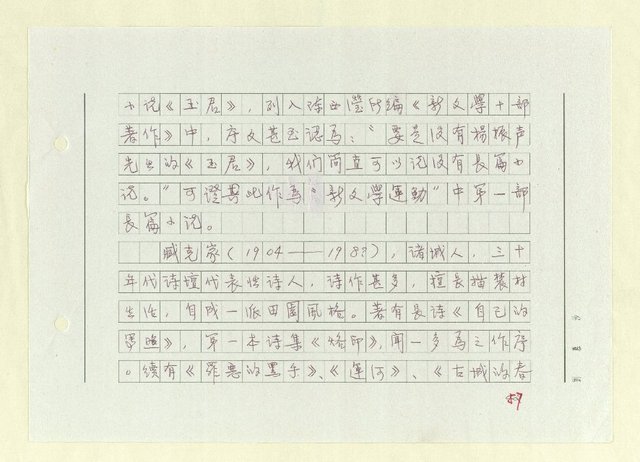 小说《玉君》，列入陈西瀅所编《新文學十部
著作》中，序文甚至認為："要是没有楊振声
先生的《玉君》，我们简直可以说没有長篇小
说。"可證其此作為"新文學運動"中第一部
長篇小说。
臧克家(1904——1983)，诸城人，三十
年代诗壇代表性诗人，诗作甚多，擅長描裝村
生活，自成一派田園風格。著有長诗《自己的
寫照》，第一本诗集《烙印》，聞一多為之作序
。續有《罪惡的黑手》、《運河》、《古城的春